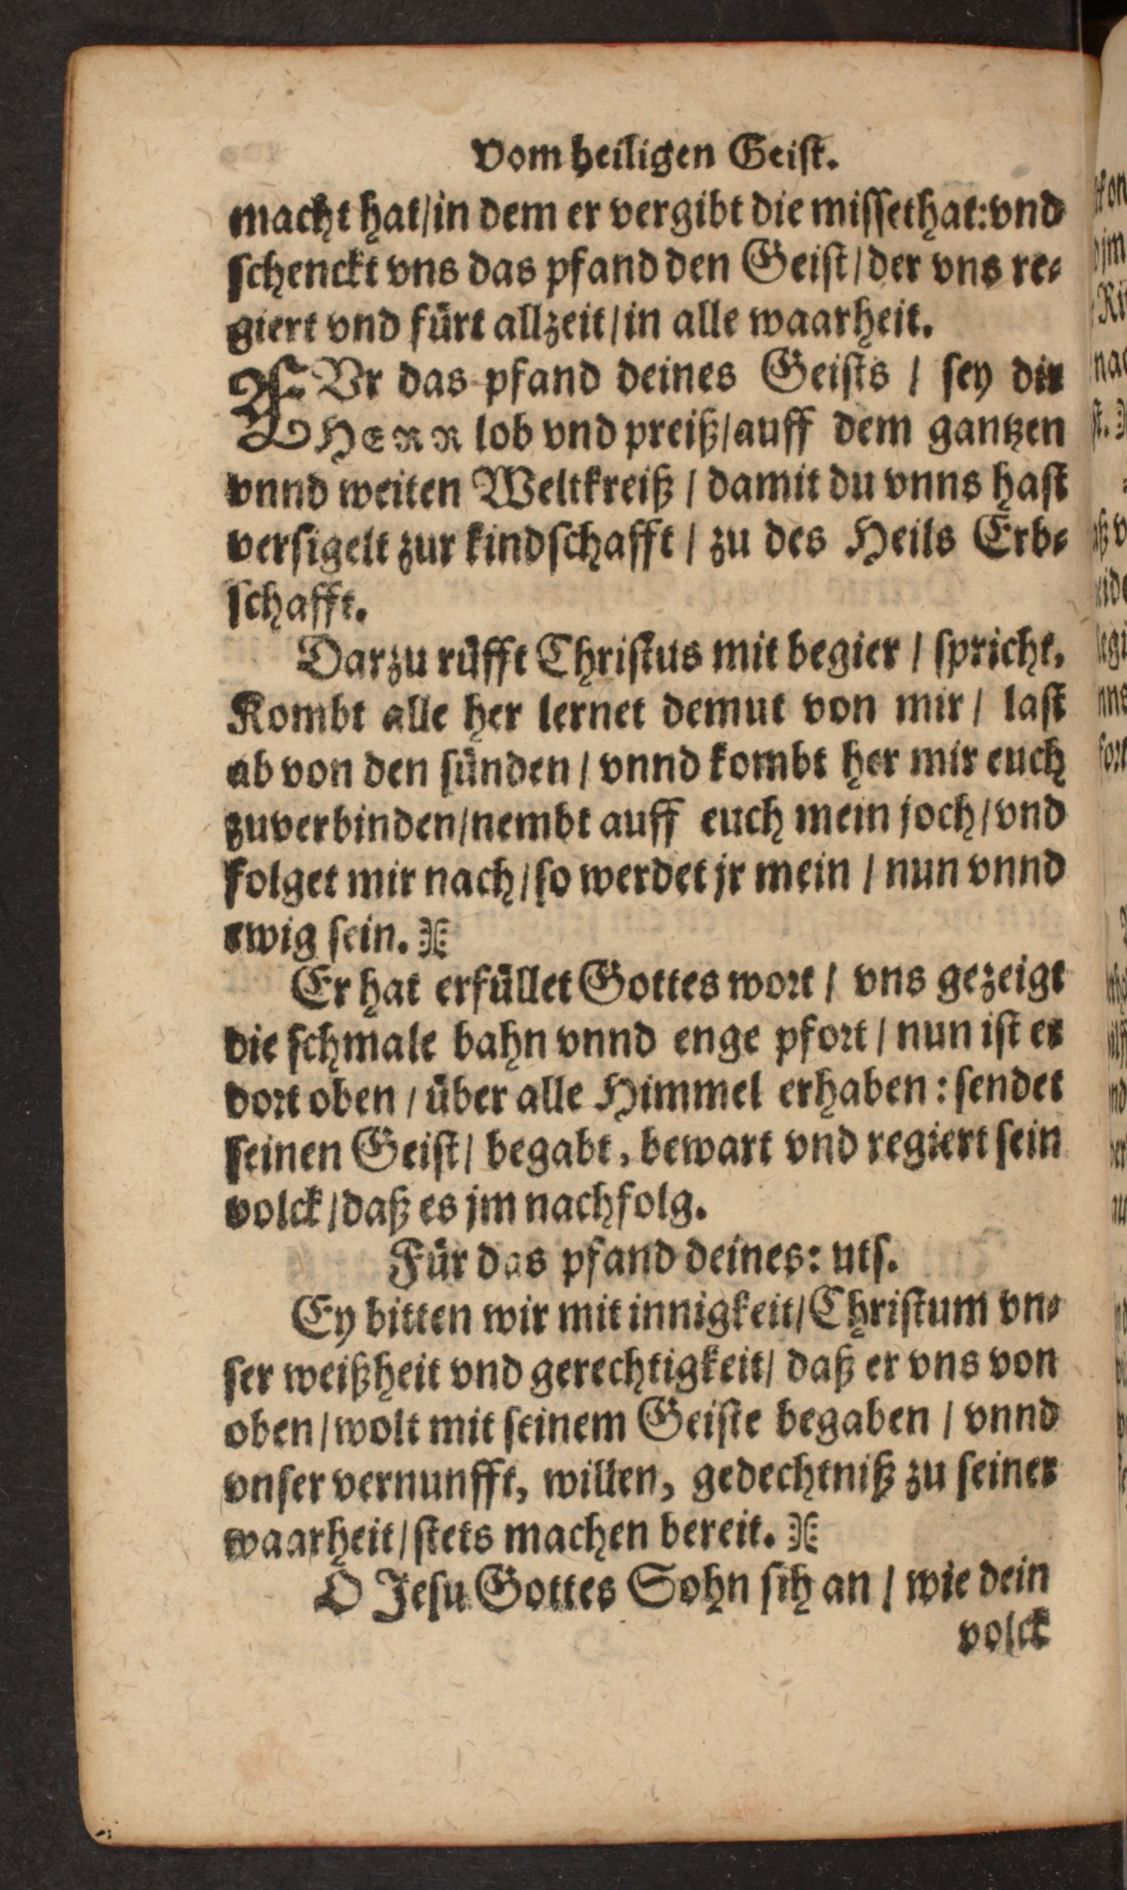 Vom heiligen Geist.
macht hat/in dem er vergibt die missethat:vnd
schenckt vns das pfand den Geist/der vns re⸗
giert vnd fürt allzeit/in alle waarheit.
FVr das pfand deines Geists / sey dir
HERR lob vnd preiß/auff dem gantzen
vnnd weiten Weltkreiß / damit du vnns hast
versigelt zur kindschafft / zu des Heils Erb⸗
schafft.
Darzu rüfft Christus mit begier / spricht,
Kombt alle her lernet demut von mir / last
ab von den sünden / vnnd kombt her mir euch
zuverbinden/nembt auff euch mein joch/vnd
folget mir nach/so werdet jr mein / nun vnnd
ewig sein.
Er hat erfüllet Gottes wort / vns gezeigt
die schmale bahn vnnd enge pfort / nun ist er
dort oben / über alle Himmel erhaben: sendet
seinen Geist/ begabt, bewart vnd regiert sein
volck/daß es jm nachfolg.
Für das pfand deines: uts.
Ey bitten wir mit innigkeit/Christum vn⸗
ser weißheit vnd gerechtigkeit/ daß er vns von
oben/wolt mit seinem Geiste begaben / vnnd
vnser vernunfft, willen, gedechtniß zu seiner
waarheit/stets machen bereit.
O Jesu Gottes Sohn sih an / wie dein
volck